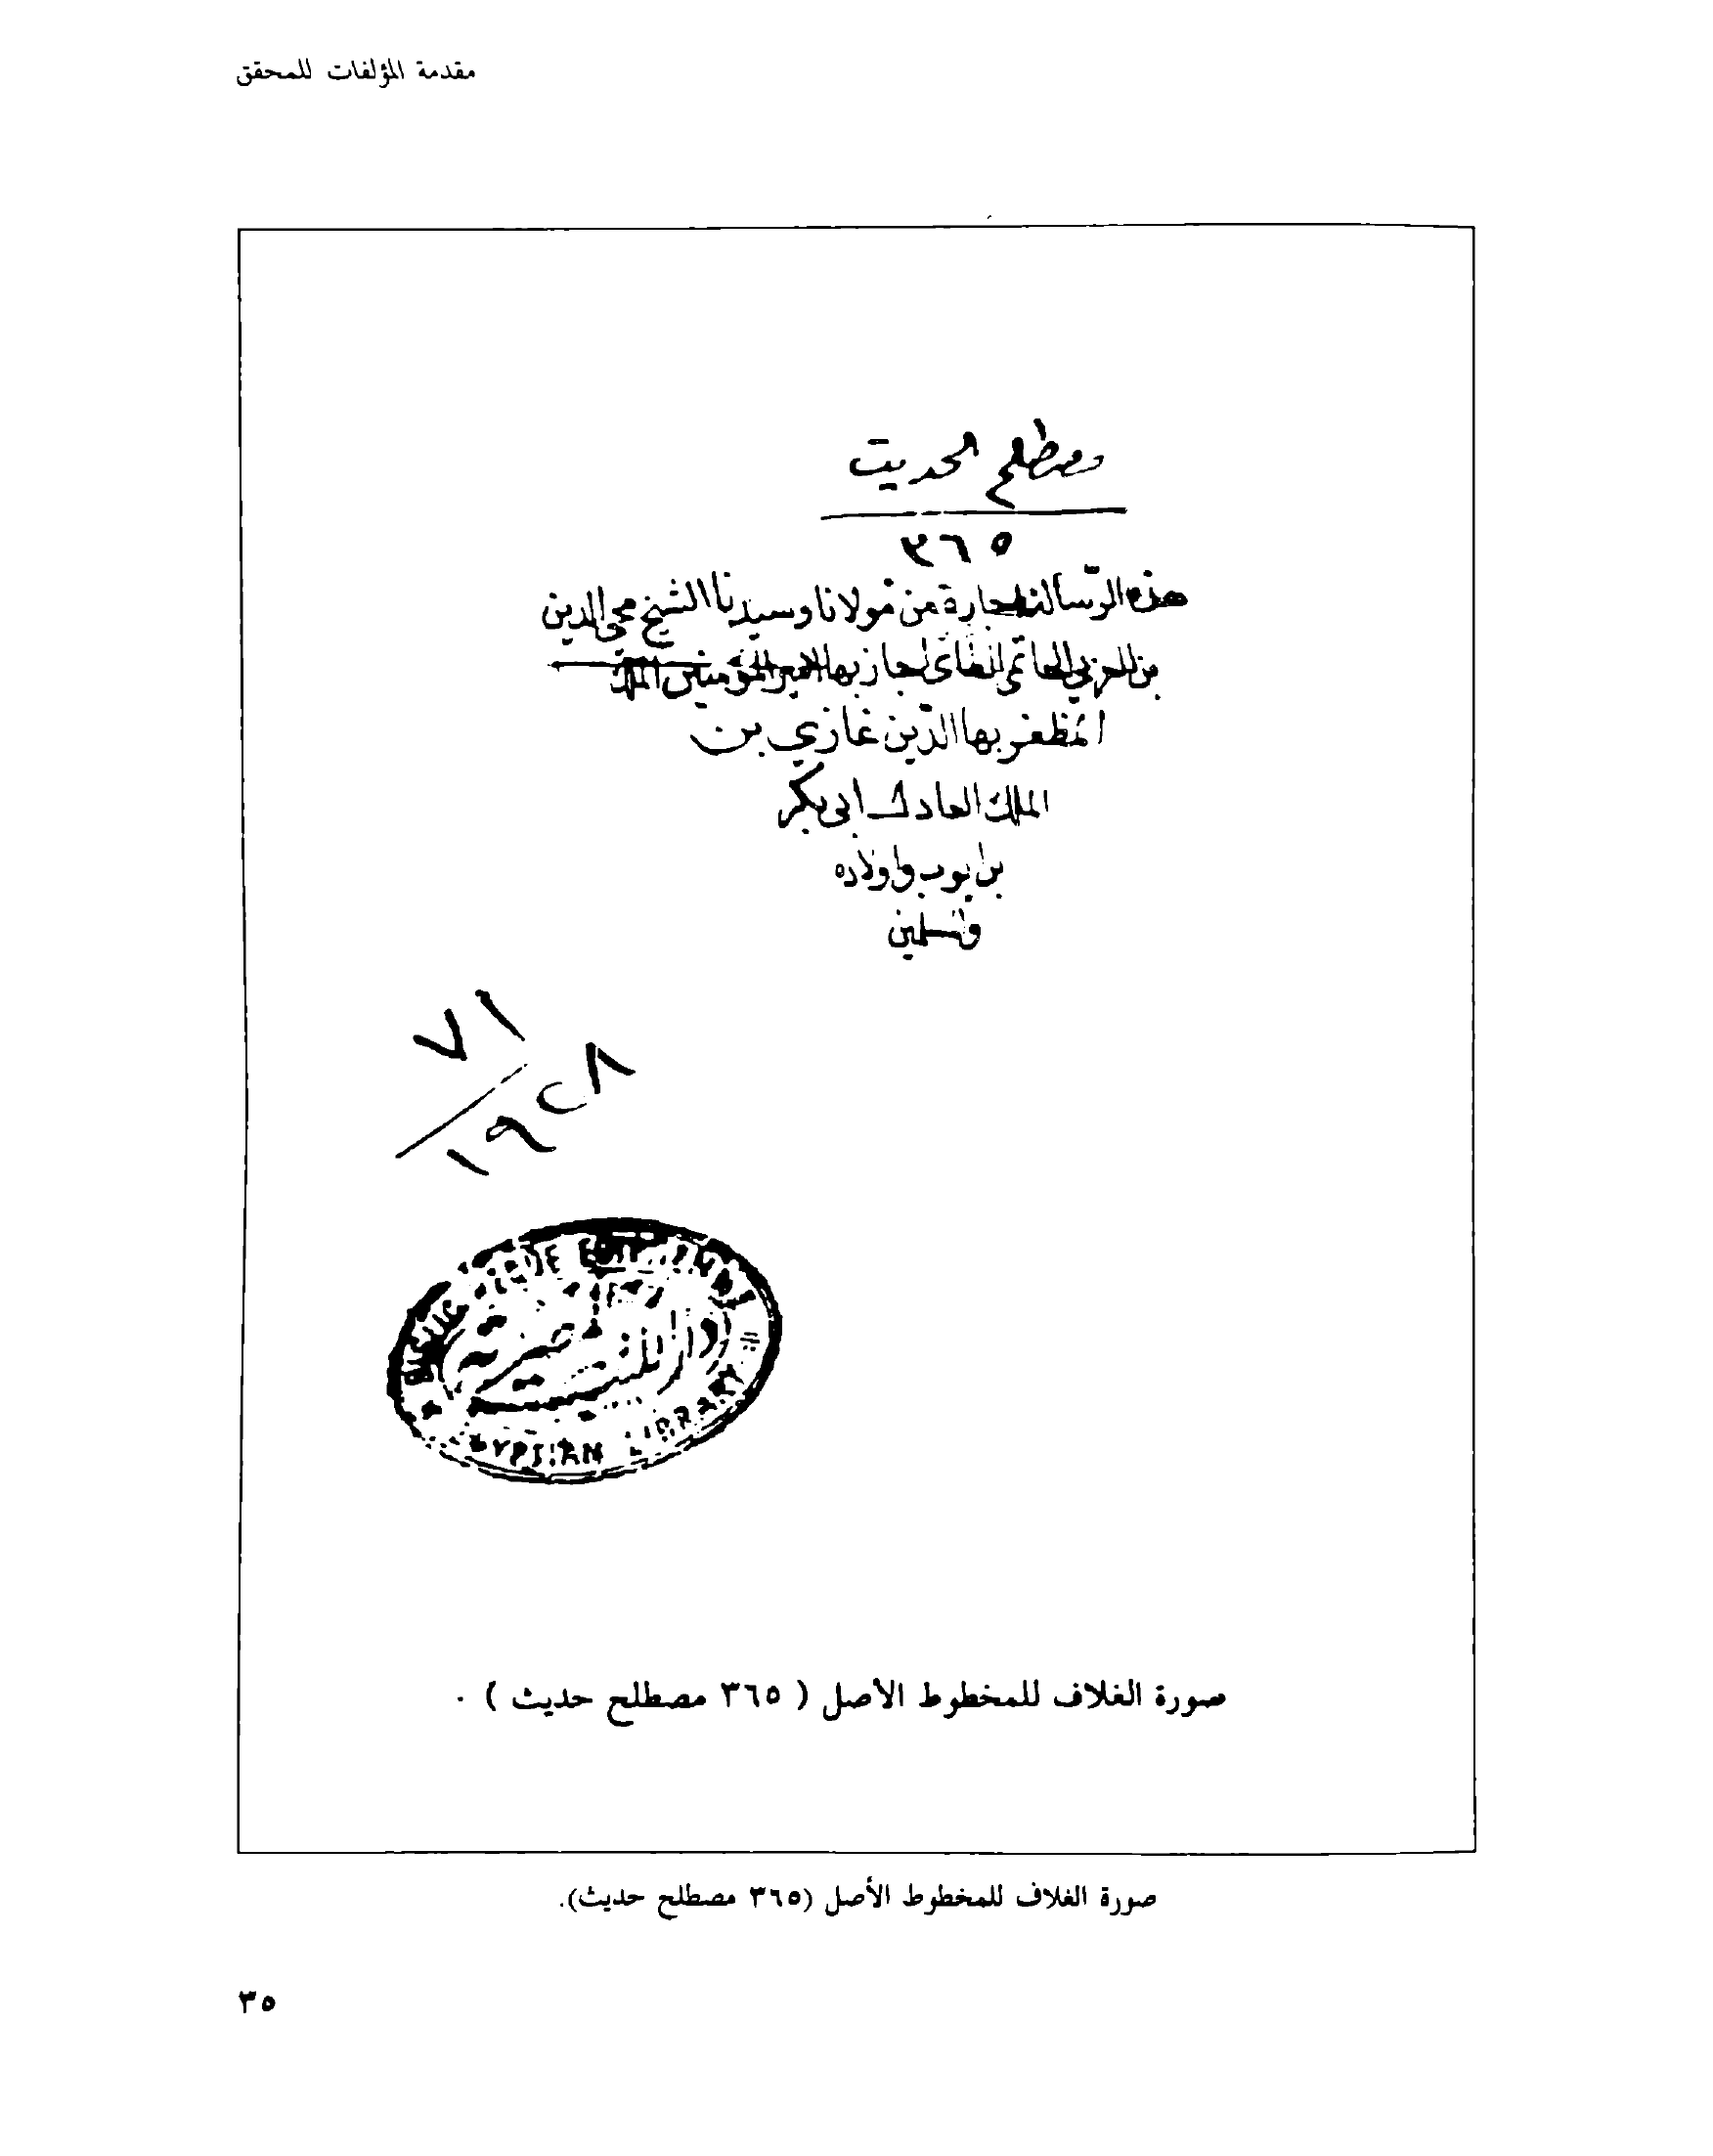 مقدمة المؤلفات للمحقق
مصطلح الحديث
٣٦٥
هذه الرسالة اجازة من مولانا وسيدنا الشيخ محي الدين
بن العربي الحاتمي الطائي اجاز بها المؤمنين الملك
المظفر بها الدين غازي بن
الملك العادل ابي بكر
بن ايوب واولاده
٧١
١٩٢٨
LIBRARY
صورة الغلاف للمخطوط الأصل ( ٣٦٥ مصطلح حديث ) .
صورة الغلاف للمخطوط الأصل (٣٦٥ مصطلح حديث).
٣٥